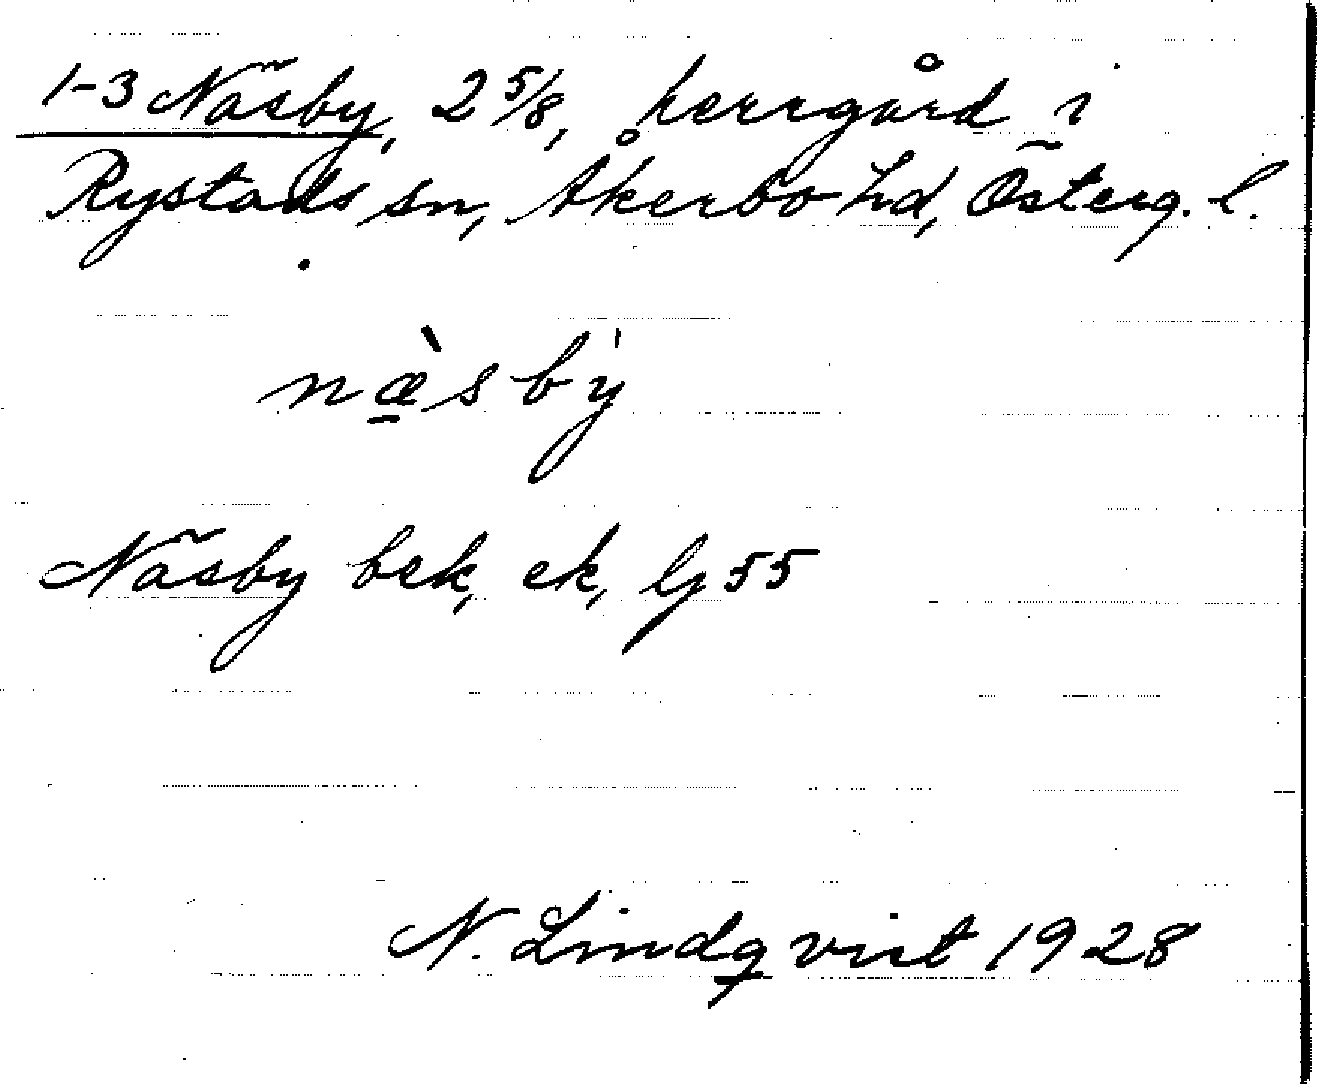 1-3 Näsby, 2 5/8, herrgård i
Rystads sn, Åkerbo hd, Österg. l.
næ̀sby̍
Näsby bek, ek, lj 55
N. Lindqvist 1928